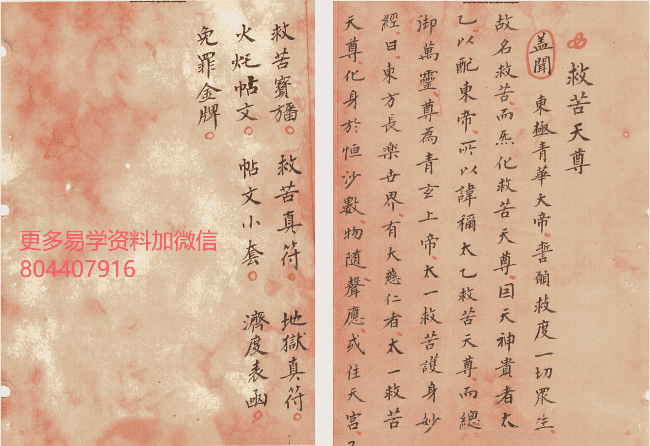 救苦寶旛 救苦真符 地獄真符
火炬帖文 帖文小套 濟度表函
免罪金牌
更多易学资料加微信
804407916
救苦天尊
盖聞 東極青華大帝誓願救度一切眾生
故名救苦而炁化救苦天尊因天神貴者太
乙以配東帝所以諱稱太乙救苦天尊而總
御萬靈尊為青玄上帝太一救苦護身妙
經曰東方長楽世界有大慈仁者太一救苦
天尊化身於恒沙數物隨聲應或住天宮